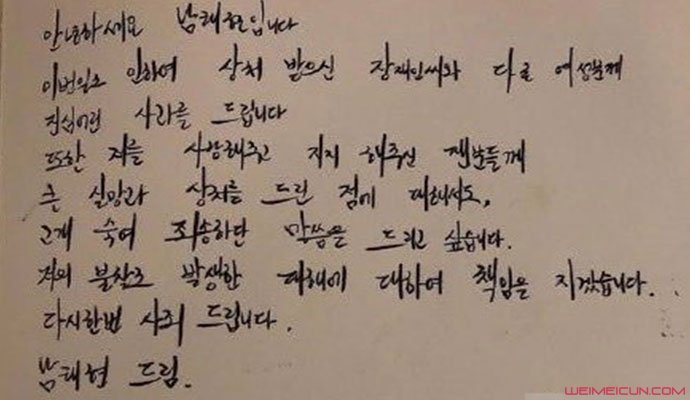 안녕하세요 남태현입니다
이번일로 인하여 상처 받으신 장재인씨와 다른 여성분께
진심어린 사과를 드립니다
또한 저를 사랑해주고 지지 해주신 팬분들께
큰 실망과 상처를 드린 점에 대해서도,
고개 숙여 죄송하단 말씀을 드리고 싶습니다.
저의 불찰로 발생한 피해에 대하여 책임을 지겠습니다.
다시한번 사죄 드립니다.
남태현 드림.
WEIMEICUN.COM